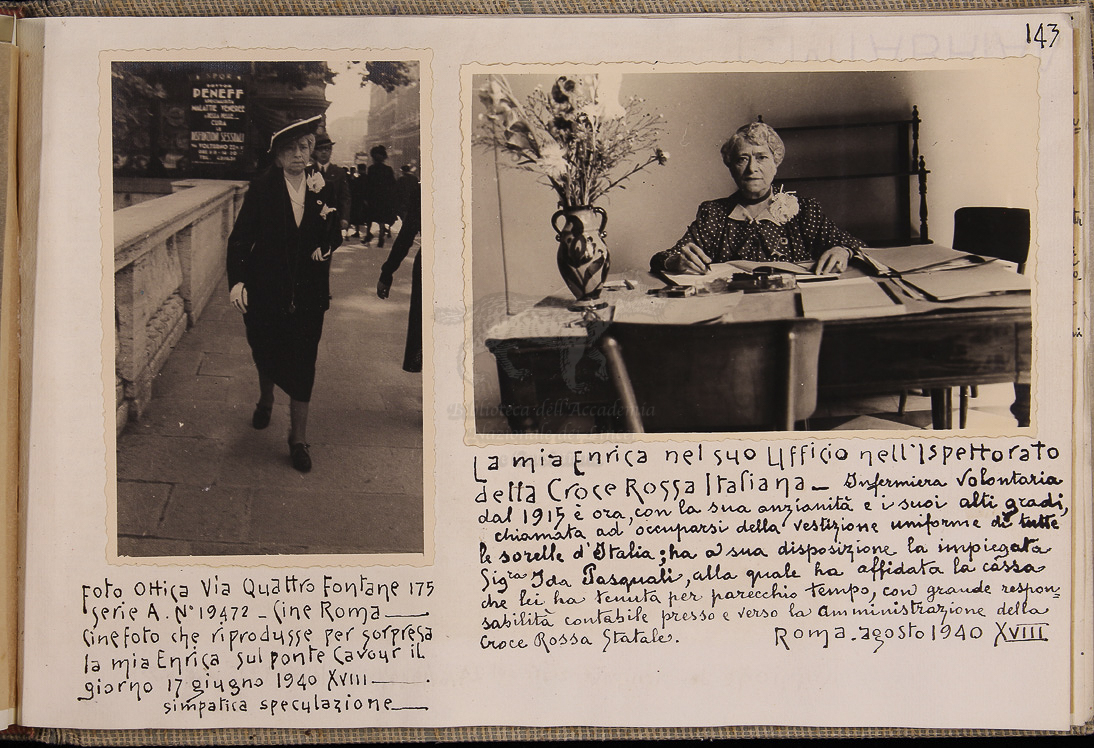 143
DOTTOR
DENEFF
SPECIALISTA
MALATTIE VENEREE
CURA
DISFUNZIONI SESSUALI
Foto Ottica Via Quattro Fontane 175
Serie A. N° 19472 - Cine Roma
Cinefoto che riprodusse per sorpresa
la mia Enrica sul ponte Cavour il
giorno 17 giugno 1940 XVIII
simpatica speculazione
La mia Enrica nel suo Ufficio nell'Ispettorato
della Croce Rossa Italiana - Infermiera Volontaria
dal 1915 è ora, con la sua anzianità e i suoi alti gradi,
chiamata ad occuparsi della vestizione uniforme di tutte
le sorelle d'Italia; ha a sua disposizione la impiegata
Sigra Ida Pasquali, alla quale ha affidata la cassa
che lei ha tenuta per parecchio tempo, con grande respon=
sabilità contabile presso e verso la Amministrazione della
Croce Rossa Statale. Roma. agosto 1940 XVIII
Biblioteca dell'Accademia